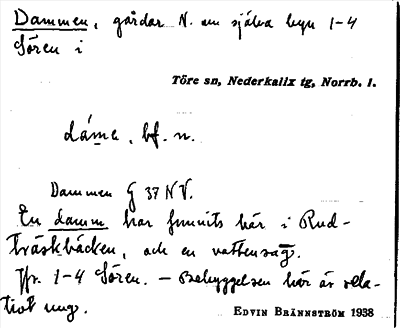 Dammen, gårdar N. om själva byn 1-4
Sören i
Töre sn, Nederkalix tg, Norrb. l.
dáme, bf. n.
Dammen G 37 NV.
En damm har funnits här i Rud-
träskbäcken, och en vattensåg.
Jfr. 1-4 Sören. – Bebyggelsen här är rela-
tivt ung.
EDVIN BRÄNNSTRÖM 1938